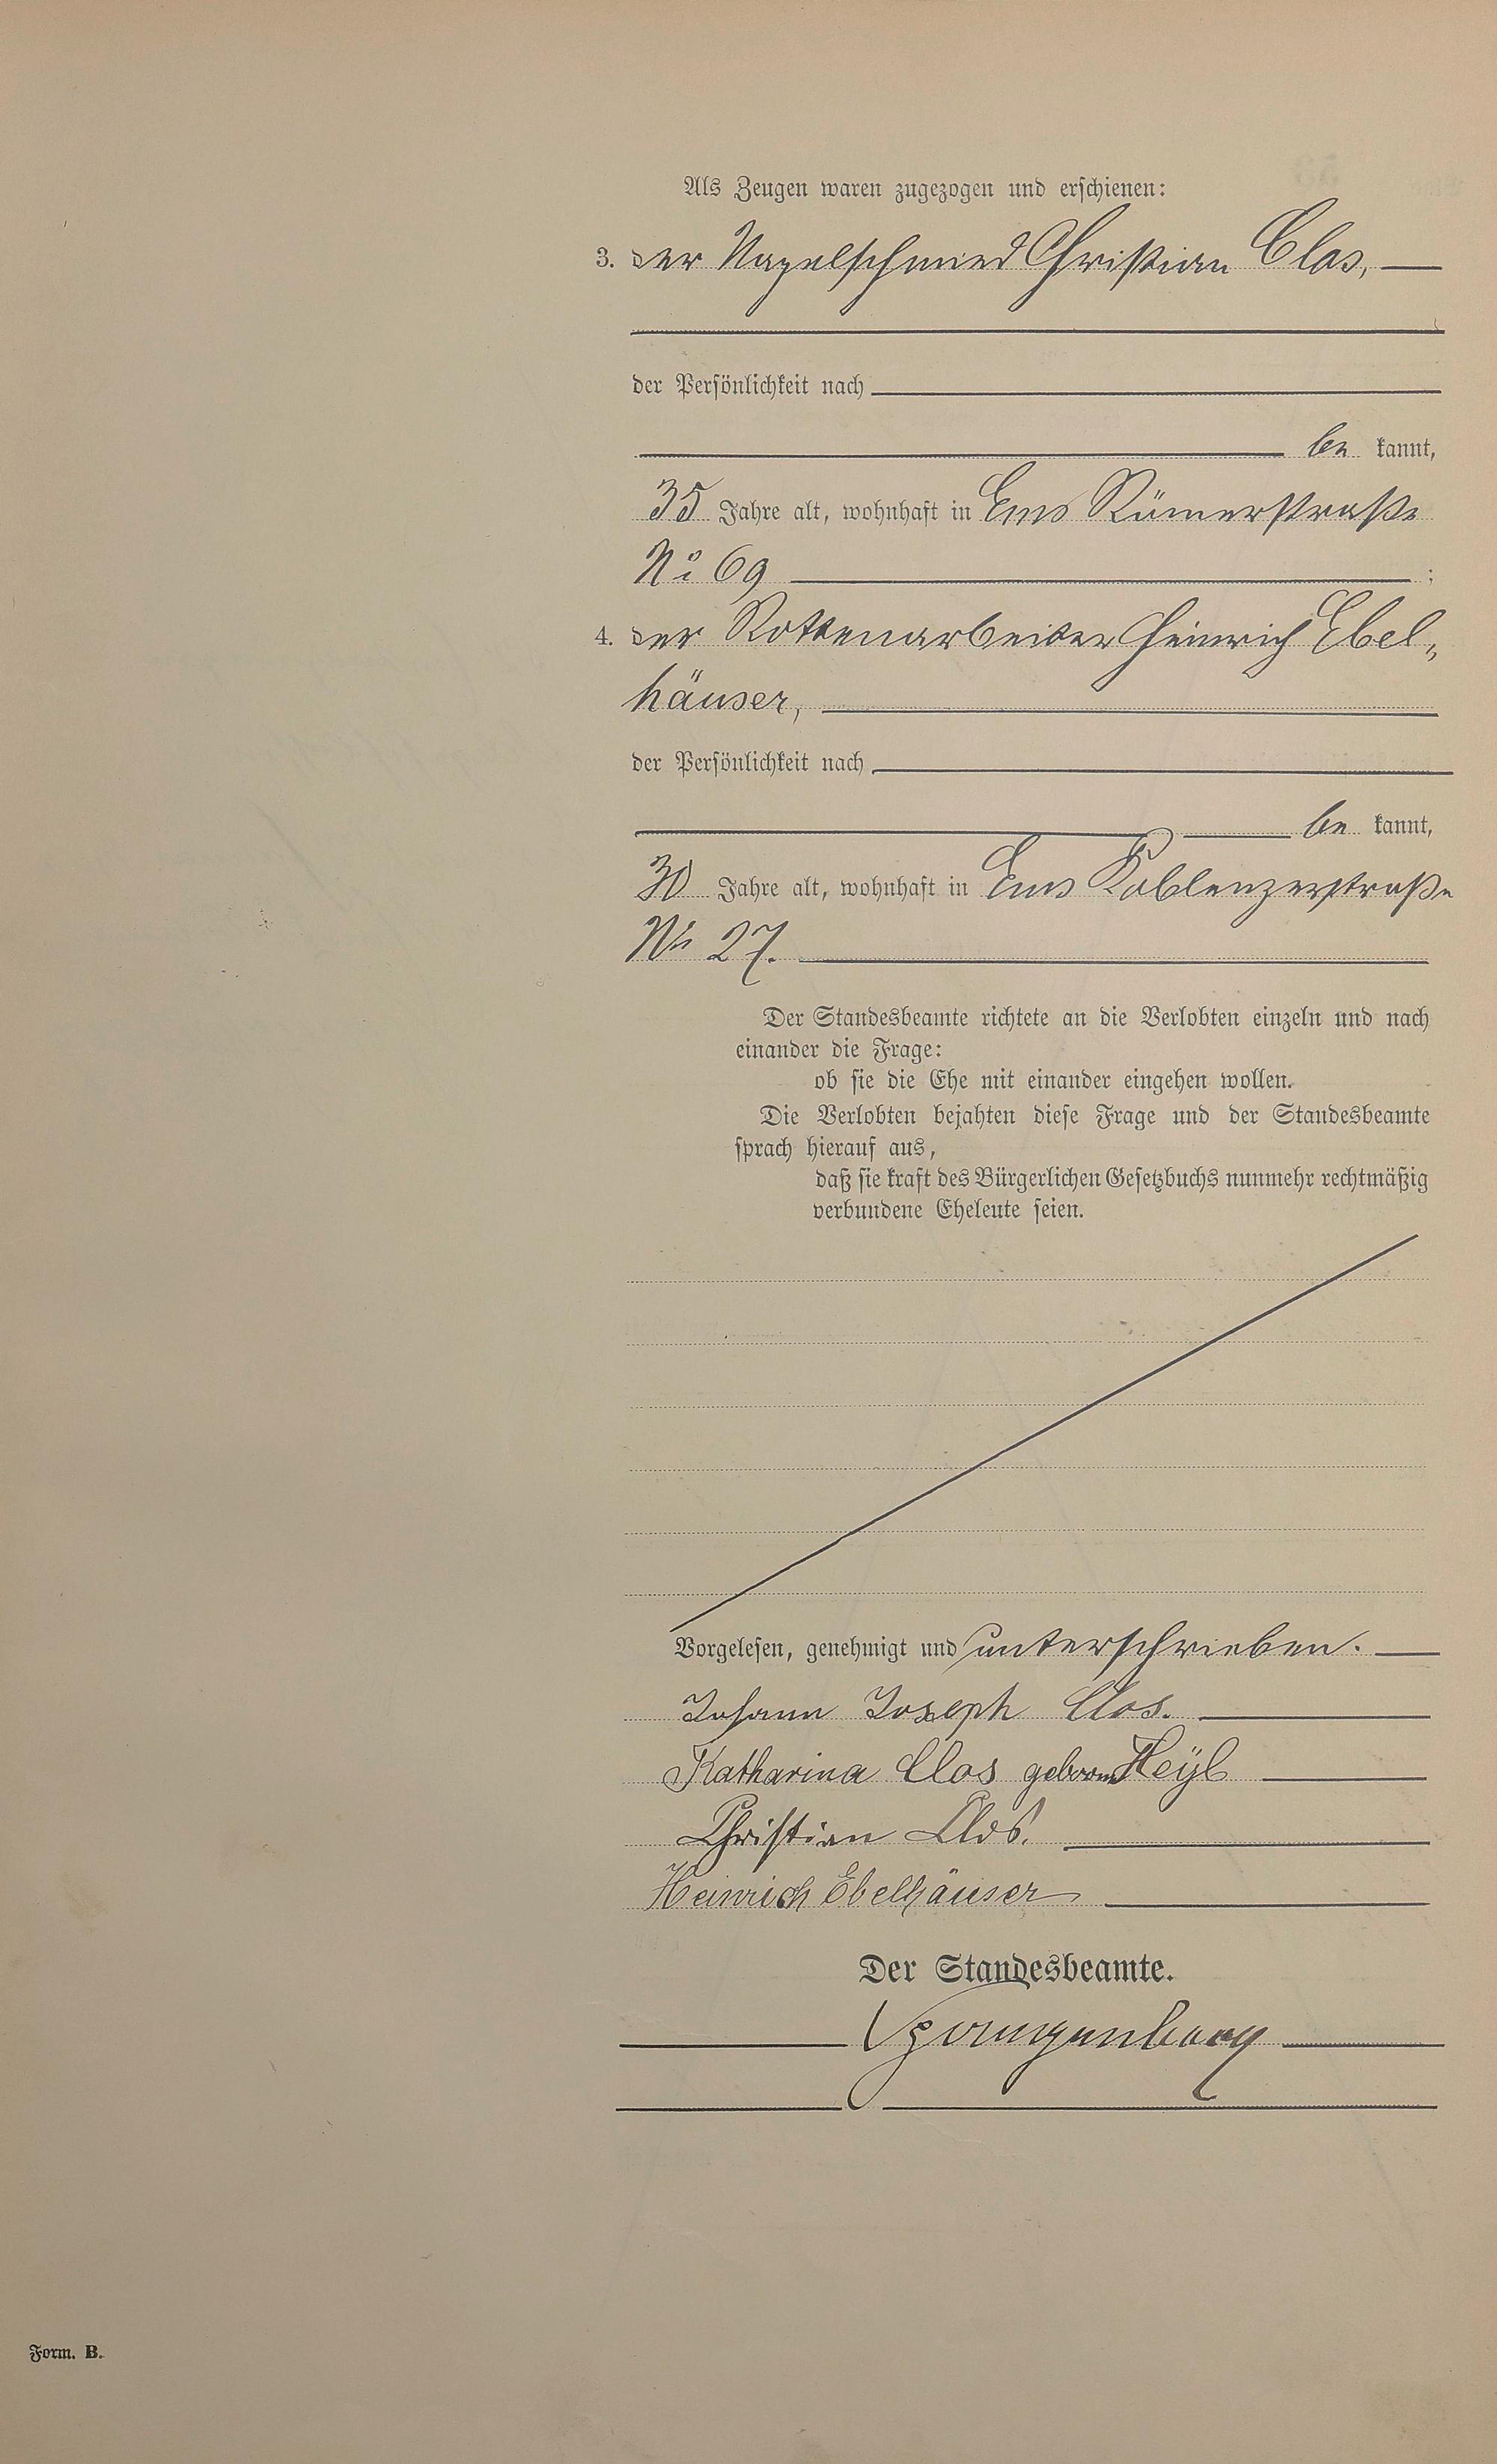 Als Zeugen waren zugezogen und erschienen:
3. der Nagelschmied Christian Clos,
der Persönlichkeit nach
be kannt,
35 Jahre alt, wohnhaft in Ems Römerstraße
No 69 ;
4. der Rottenarbeiter Heinrich Ebel„
häuser,
der Persönlichkeit nach
be kannt,
30 Jahre alt, wohnhaft in Ems Koblenzerstraße
No 27.
Der Standesbeamte richtete an die Verlobten einzeln und nach
einander die Frage:
ob sie die Ehe mit einander eingehen wollen.
Die Verlobten bejahten diese Frage und der Standesbeamte
sprach hierauf aus,
daß sie kraft des Bürgerlichen Gesetzbuchs nunmehr rechtmäßig
verbundene Eheleute seien.
Vorgelesen, genehmigt und unterschrieben.
Johann Joseph Clos.
Katharina Clos geboren Heÿl
Christian Clos.
Heinrich Ebelhäuser
Der Standesbeamte.
Form. B.